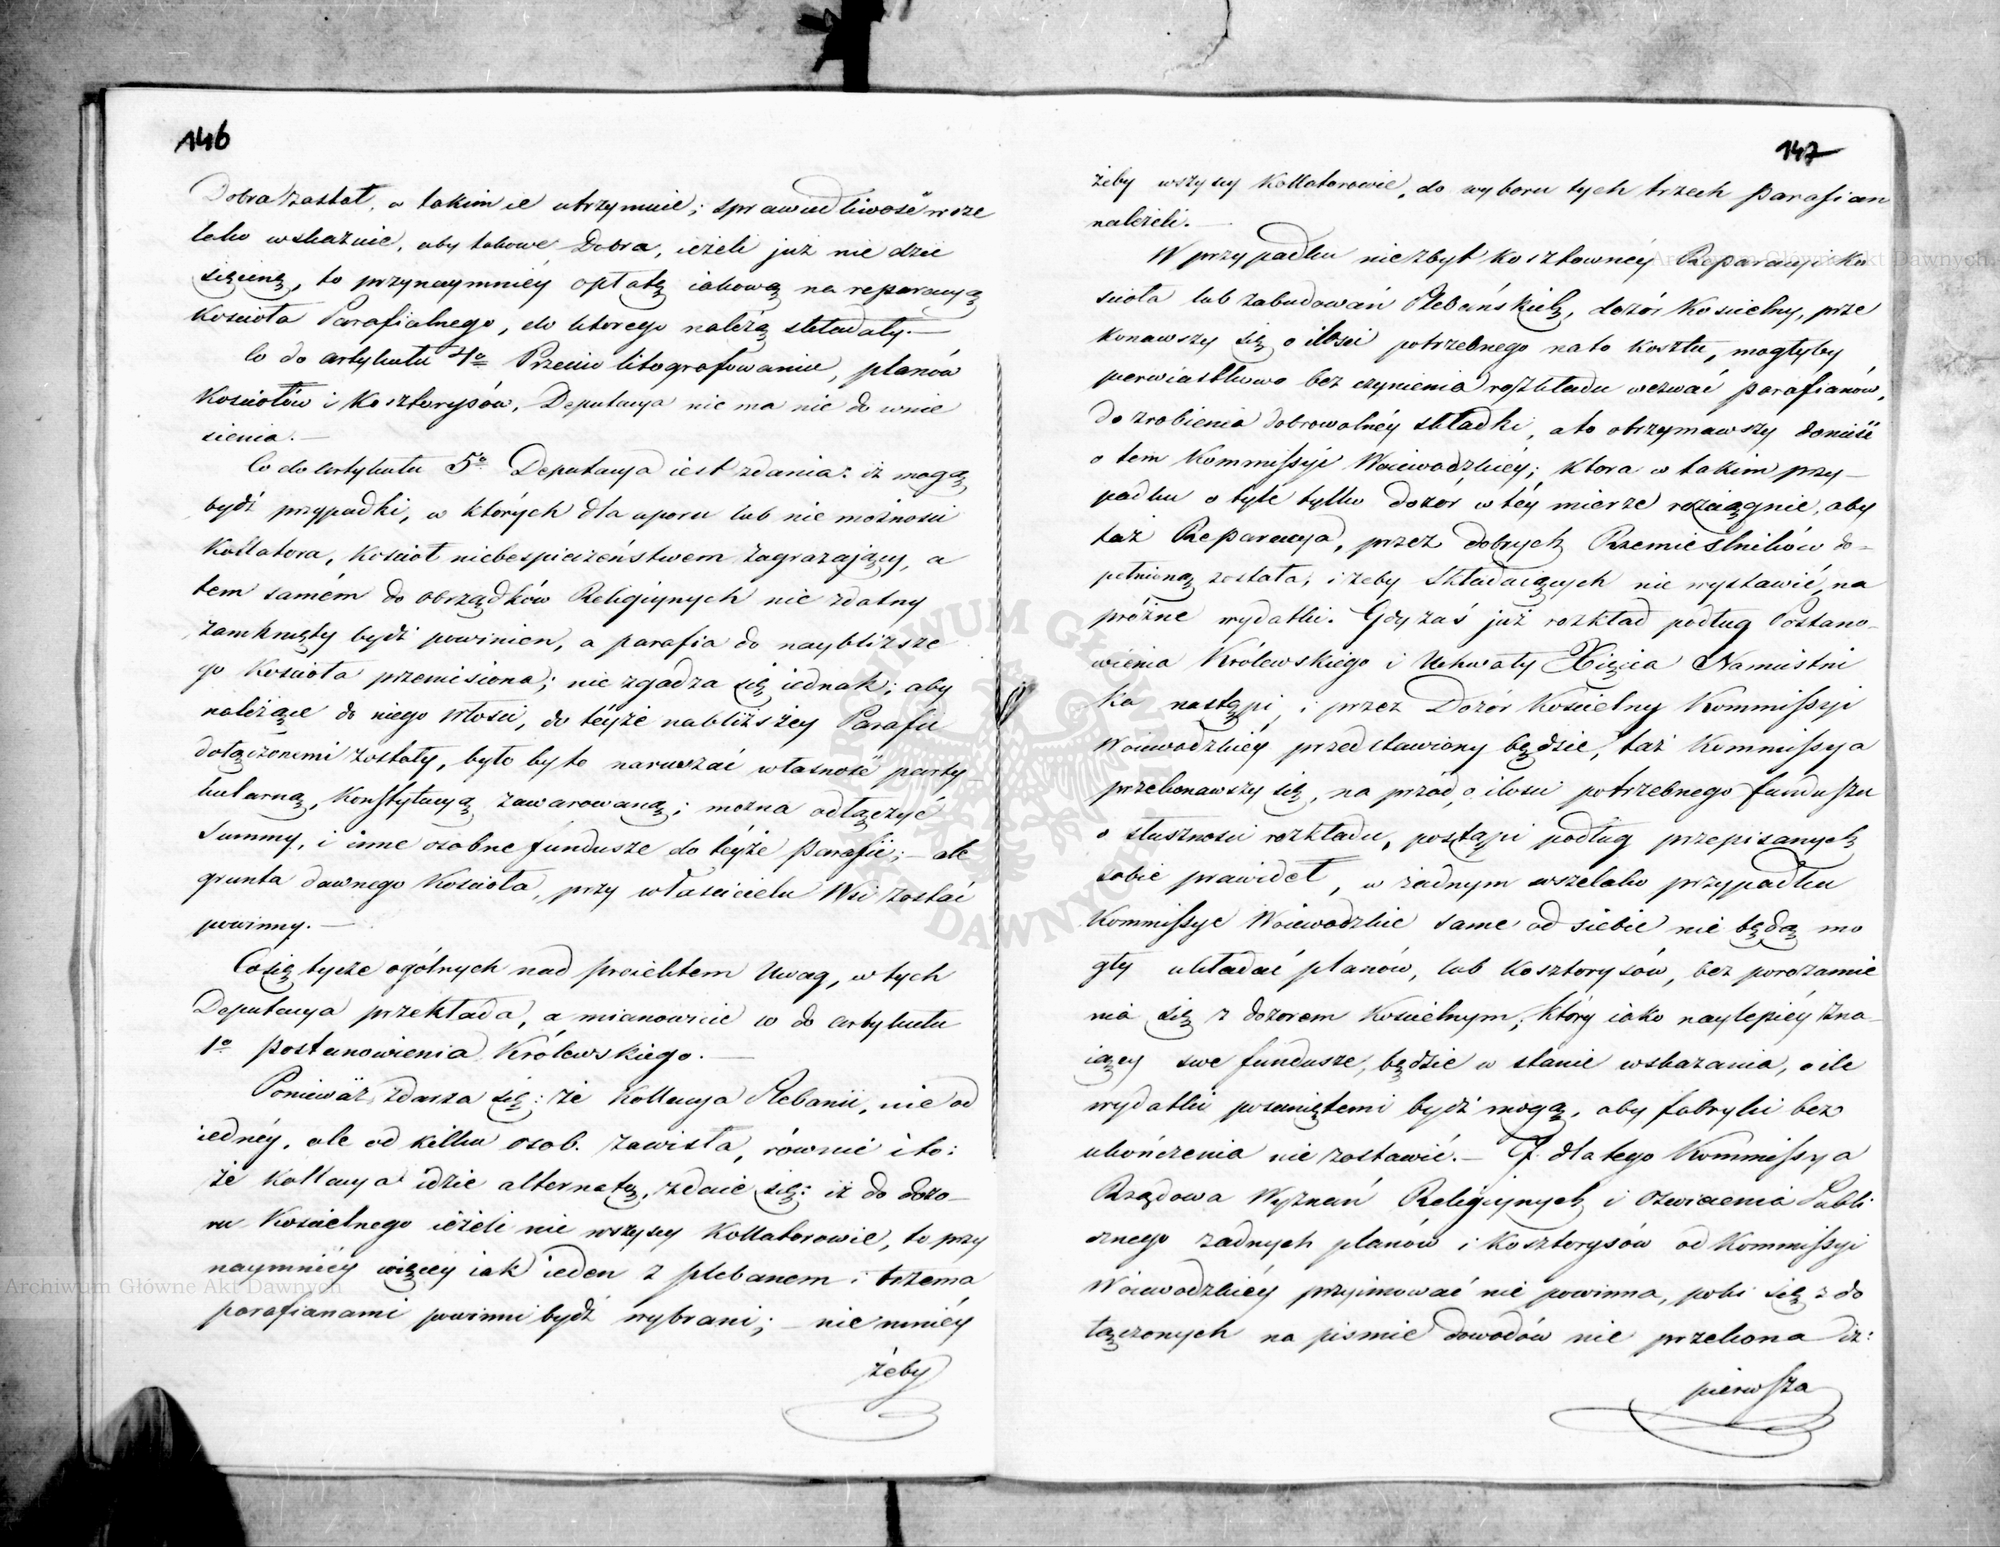 146
Dobra zastał, w takim ie utrzymuie; sprawiedliwość wsze
lako wskazuie, aby takowe Dobra, ieżeli już nie dzie
sięcinę, to przynaymniey opłatę iakową na reparacyą
Kościoła Parafialnego, do którego należą składały.—
Co do artykułu 4o Przeciw litografowaniu, planów
Kościołów i Kosztorysów, Deputacya nie ma nic do wnie
sienia.—
Co do artykułu 5o Deputacya iest zdania: iż mogą
bydź przypadki, w których dla uporu lub nie możności
Kollatora, Kościoł niebespieczeństwem zagrażaiący, a
tem samém do obrządków Religiynych nie zdatny
zamknięty bydź powinien, a parafia do naybliższe
go Kościoła przeniesiona; nie zgadza się iednak; aby
należące do niego włości, do téyże nabliższey Parafii
dołączonemi zostały, było by to naruszać własność party
kularną, Konstytucyą zawarowaną; można odłączyć
Summy, i inne osobne fundusze do téyże Parafii;— ale
grunta dawnego Kościoła, przy właścicielu Wsi zostać
powinny.—
Co się tycze ogólnych nad proiektem Uwag, w tych
Deputacya przekłada, a mianowicie co do artykułu
1o postanowienia Królewskiego.—
Ponieważ zdarza się: że Kollacya Plebanii, nie od
iednéy, ale od kilku osob. zawisła, równie i to:
że Kollacya idzie alternatą, zdaie się: iż do dozo-
ru Kościelnego ieżeli nie wszyscy Kollatorowie, to przy
naymniéy więcey iak ieden z plebanem i trzema
parafianami powinni bydź wybrani;— nie mniéy
żeby
147
żeby wszyscy Kollatorowie, do wyboru tych trzech Parafian
należeli.—
W przypadku nie zbyt kosztownéy Reparacyi Ko
ścioła lub zabudowań Plebańskich, dozór Kościelny, prze
konawszy się o ilości potrzebnego na to kosztu, mogłyby
pierwiastkowo bez czynienia rozkładu wezwać parafianów,
do zrobienia dobrowolnéy składki, a to otrzymawszy donieść
o tem Kommissyi Woiewodzkiéy; która w takim przy-
padku o tyle tylko dozór w téy mierze rozciągnie, aby
taż Reparacya, przez dobrych Rzemieślników do-
pełnioną została; i żeby składaiących nie wystawić, na
próżne wydatki. Gdy zaś już rozkład podług Postano-
wienia Królewskiego i Uchwały Xięcia Namiestni
ka nastąpi, i przez Dozór Kościelny Kommissyi
Woiewodzkiéy przedstawiony będzie, taż Kommissya
przekonawszy się, na przód, o ilości potrzebnego funduszu
o słuszności rozkładu, postąpi podług przepisanych
sobie prawideł, w żadnym wszelako przypadku
Kommissye Woiewodzkie same od siebie nie będą mo
gły układać planów, lub Kosztorysów, bez porozumie
nia się z dozorem Kościelnym; który iako naylepiéy zna-
iący swe fundusze, będzie w stanie wskazania, o ile
wydatki posuniętemi bydź mogą, aby fabryki bez
ukończenia nie zostawić.— I dla tego Kommissya
Rządowa Wyznań Religiynych i Oświecenia Publi
cznego żadnych planów i Kosztorysów od Kommissyi
Woiewodzkiéy przyimować nie powinna, poki się z do
łączonych na piśmie dowodów nie przekona iż:
pierwsza
Archiwum Główne Akt Dawnych
Archiwum Główne Akt Dawnych
ARCHIWUM GŁÓWNE AKT DAWNYCH